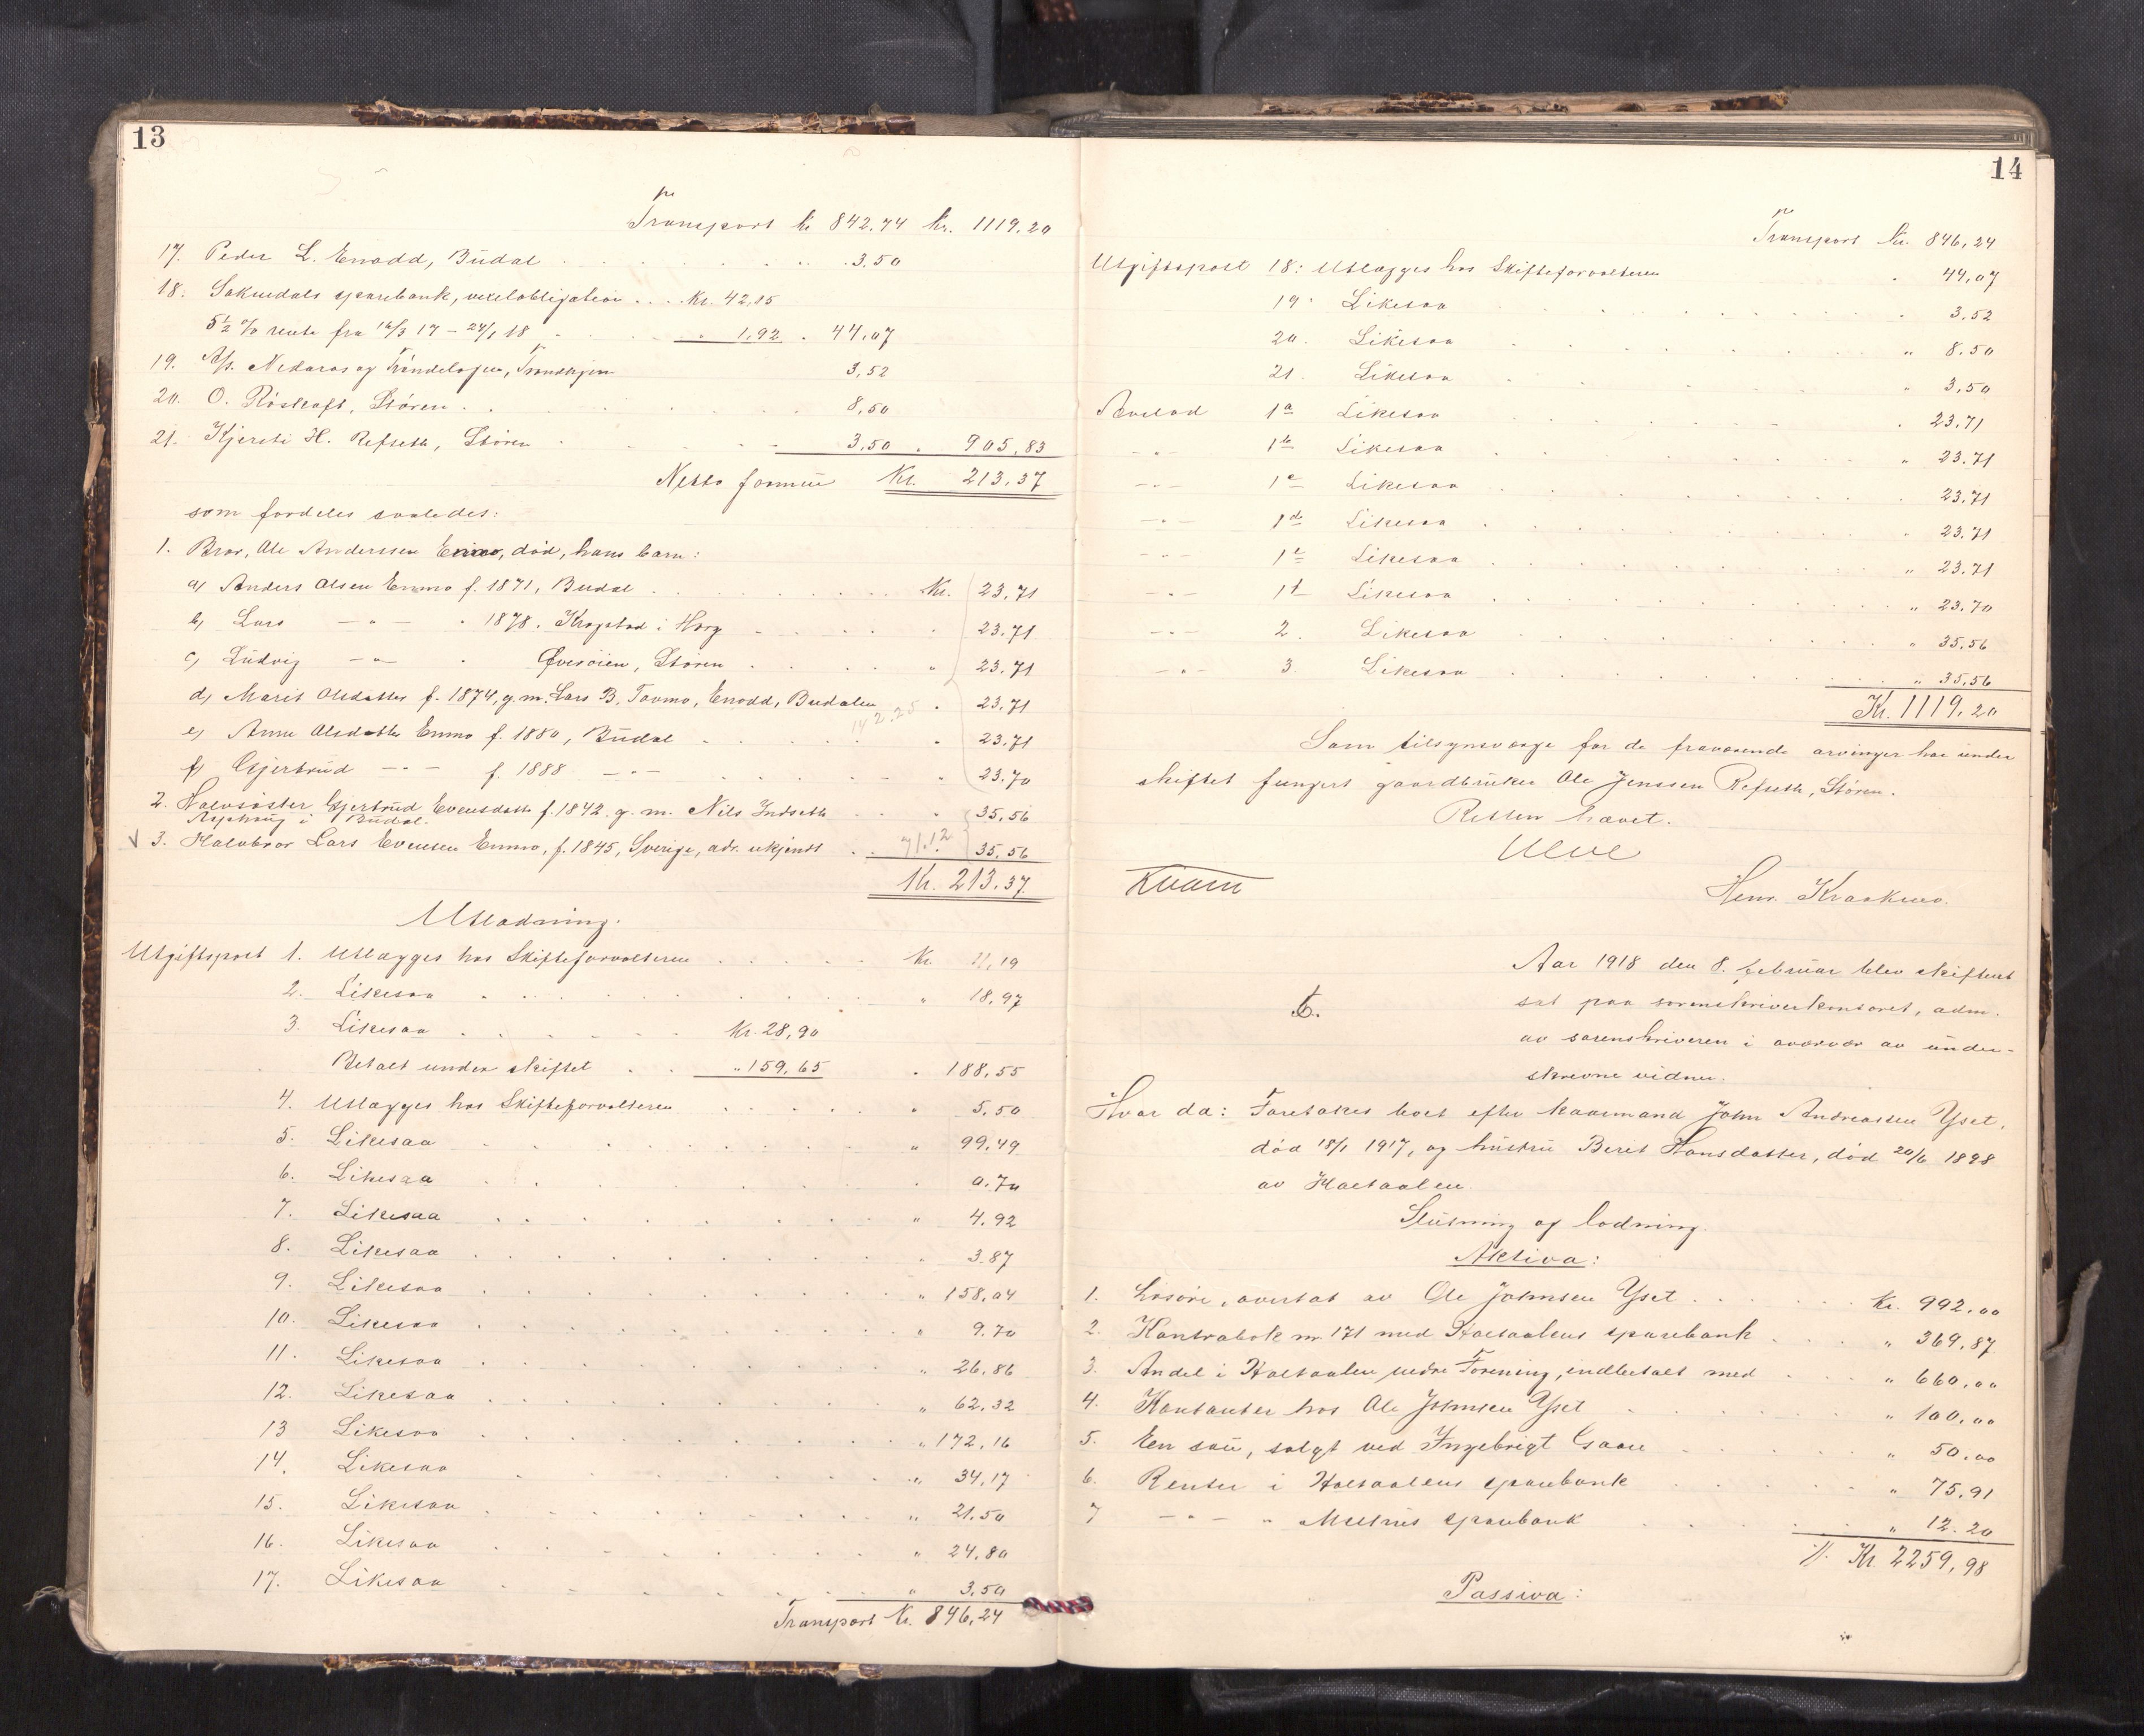 13
pr
Transport kr 842.74 Kr. 1119.20
17. Peder L. Enodd, Budal . . . 3.50
18. Soknedals sparebank, vexelobligation . . . Kr. 42,15
5½ % rente fra 16/3 17 – 24/1 18 - . . " 1.92 . 44.07
19. A/s. Nidaros og Trøndelagen, Trondhjem 3,52
20. O. Røskaft, Støren . . . 8,50
21. Kjersti H. Refseth, Støren . . . 3,50 . 905,83
Netto formue Kr. 213.37
som fordeles saaledes:
1. Bror, Ole Anderssen Enmo, død, hans barn:
a) Anders Olsen Enmo f. 1871, Budal . . . Kr. 23,71
b) Lars — " — " 1878. Krogstad i Horg . . . 23.71
c) Ludvig — " — . Øverøien, Støren . . . " 23.71
d) Marit Olsdatter f. 1874, g.m. Lars B. Tovmo, Enodd, Budalen . 23.71
142.25
e) Anne Olsdatter Enmo f. 1880, Budal . . . 23.71
f) Gjertrud — " — f. 1888 — " — . . . 23.70
2. Halvsøster Gjertrud Evensdatter f. 1842 g. m. Nils Indseth . . . 35,56
i Budal.
3. Halvbror Lars Evensen Enmo, f. 1845, Sverige, adr. ukjendt . . 71.12 35,56
Kr. 213.37
Utlodning.
Utgiftspost 1. Utlægges hos Skifteforvalteren . . . Kr. 11,19
2. Likesaa . . . " 18,97
3. Likesaa . . . Kr. 28,90
Betalt under skiftet . . " 159,65 . 188,55
4. Utlægges hos Skifteforvalteren . . . " 5,50
5. Likesaa . . . " 99,49
6. Likesaa . . . 0.70
7. Likesaa . . . " 4,92
8. Likesaa . . . 3.87
9. Likesaa . . . " 158,04
10. Likesaa . . . " 9.70
11. Likesaa . . . " 26,86
12. Likesaa . . . " 62,32
13 Likesaa . . . " 172,16
14. Likesaa . . . " 34,17
15. Likesaa . . . " 21.50
16. Likesaa . . . " 24,80
17. Likesaa . . . " 3.50
Transport Kr. 846,24
14
pr
Transport Kr. 846,24
Utgiftspost 18: Utlægges hos Skifteforvalteren . 44,07
19. Likesaa . . . 3.52
20. Likesaa . . . " 8.50
21. Likesaa . . . " 3,50
Arvelod 1a Likesaa . . . 23,71
— " — 1b Likesaa . . . " 23.71
— " — 1c Likesaa . . . 23.71
— " — 1d Likesaa . . . " 23.71
— " — 1e Likesaa . . . " 23.71
— " — 1f Likesaa . . . " 23.70
— " — 2. Likesaa . . . " 35,56
— " — 3. Likesaa . . . " 35,56
Kr. 1119,20
Som tilsynsværge for de fraværende arvinger har under
skiftet fungert gaardbruker Ole Jenssen Refseth, Støren.
Retten hævet.
Ulve
Kvam
Henr. Kraakmo.
Aar 1918 den 8. februar blev skifteret
6. sat paa sorenskriverkontoret, adm.
av sorenskriveren i overvær av under-
skrevne vidner.
Hvor da: Foretokes boet efter kaarmand John Andreassen Yset,
død 18/1 1917, og hustru Beret Hansdatter, død 20/6 1898
av Holtaalen.
Slutning og lodning.
Aktiva:
1. Løsøre, overtat av Ole Johnsen Yset . . . Kr. 992.00
2. Kontrabok nr 171 med Holtaalens sparebank . . . " 369,87
3. Andel i Holtaalen nedre Forening, indbetalt med . . . " 660,00
4. Kontanter hos Ole Johnsen Yset . . . " 100,00
5. En sau, solgt ved Ingebrigt Gaare . . . " 50.00
6. Renter i Holtaalens sparebank . . . " 75,91
7 — " — " Meldhus sparebank . . . " 12.20
Kr 2259,98
Passiva: